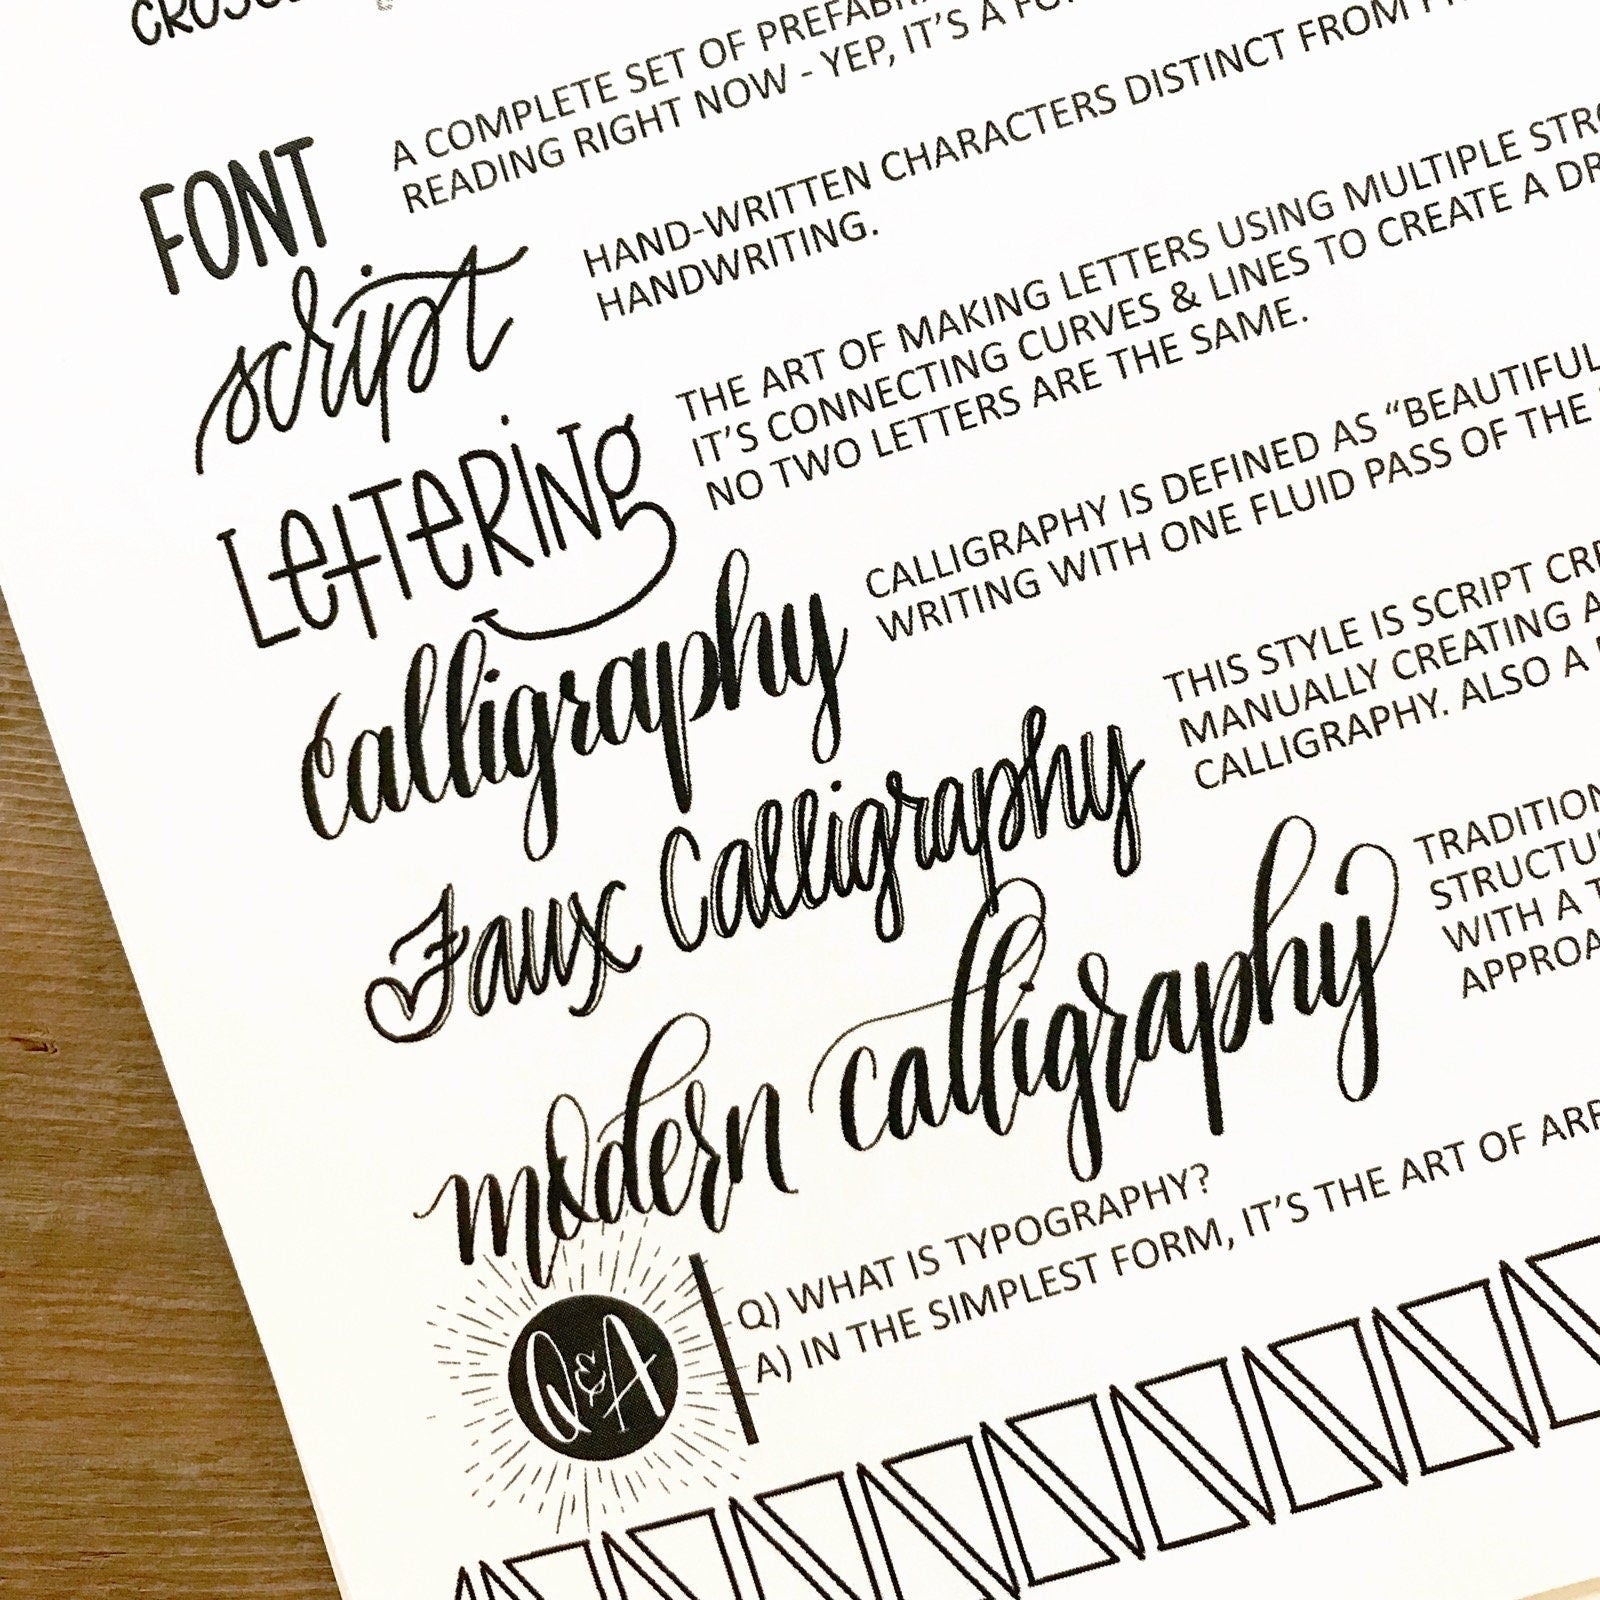 FONT
A COMPLETE SET OF
READING RIGHT NOW - YEP, IT'S A
script
HAND-WRITTEN CHARACTERS DISTINCT FROM
HANDWRITING.
LETTERING
THE ART OF MAKING LETTERS USING MULTIPLE
IT'S CONNECTING CURVES & LINES TO CREATE A
NO TWO LETTERS ARE THE SAME.
Calligraphy
CALLIGRAPHY IS DEFINED AS "BEAUTIFUL
WRITING WITH ONE FLUID PASS OF THE
Faux Calligraphy
THIS STYLE IS SCRIPT
MANUALLY CREATING
CALLIGRAPHY. ALSO A
modern calligraphy
WITH A
Q&A
Q) WHAT IS TYPOGRAPHY?
A) IN THE SIMPLEST FORM, IT'S THE ART OF